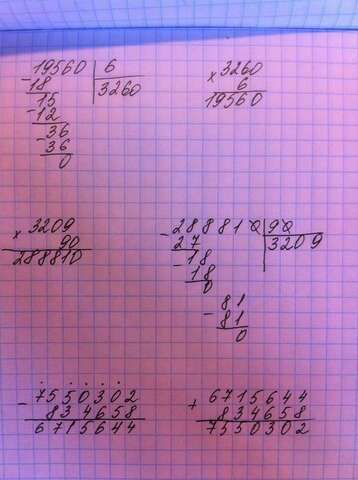 19560 | 6
-18 | 3260
15
-12
36
-36
0
× 3260
6
19560
× 3209
90
288810
- 288810 | 90
27 | 3209
-18
18
0
81
- 81
0
- 7550302
834658
6715644
+ 6715644
834658
7550302